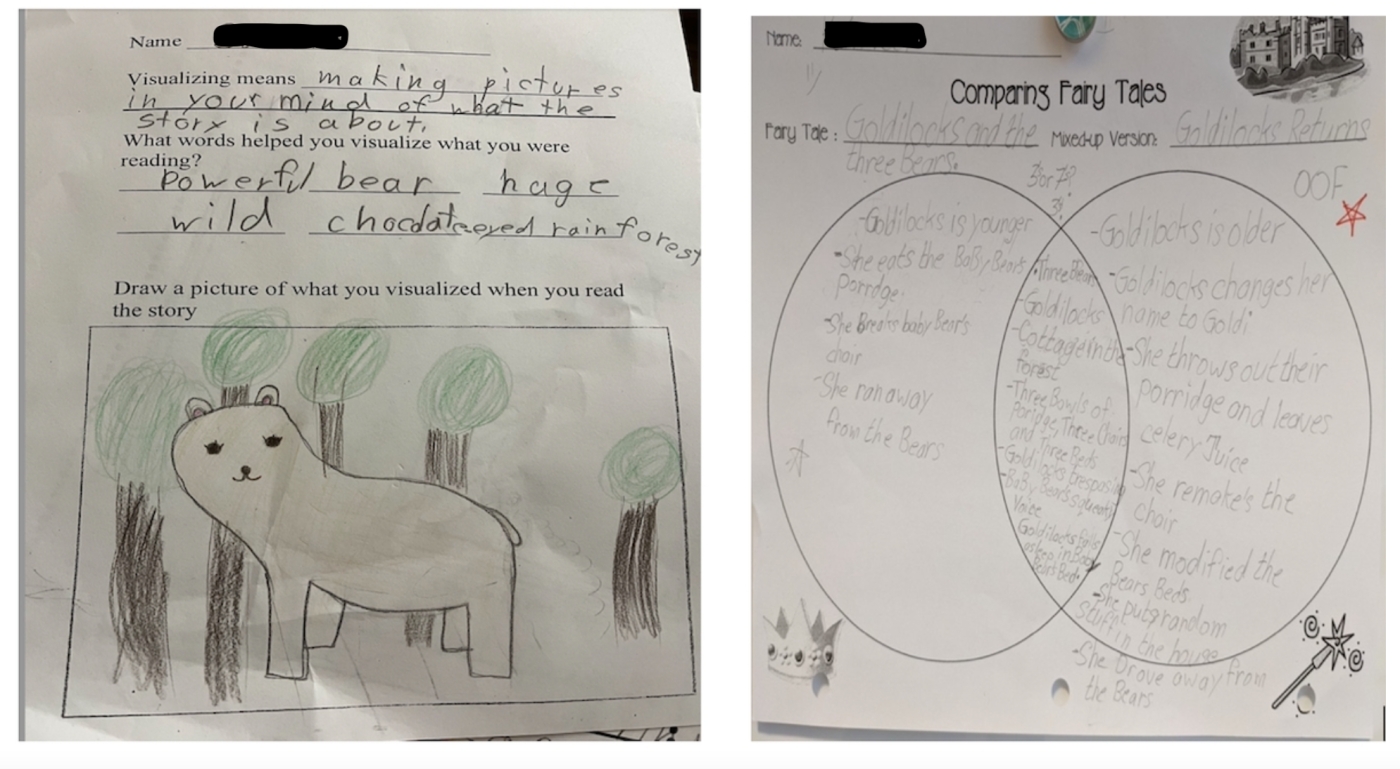 Name
Visualizing means making pictures
in your mind of what the
story is about.
What words helped you visualize what you were
reading?
powerful bear huge
wild chocolate eyed rainforest
Draw a picture of what you visualized when you read
the story
Name:
11
Comparing Fairy Tales
Fairy Tale: Goldilocks and the
three Bears.
Mixed-up Version: Goldilocks Returns
3 or 7?
3!
OOF
-Goldilocks is younger
-She eats the Baby Bears
Porridge.
-She Breaks baby Bear's
chair
-She ran away
from the Bears
-Three Bears
-Goldilocks
-Cottage in the
forest
-Three Bowls of
Poridge, Three Chairs
and Three Beds
-Goldilocks trespasing
-Baby Bears squeaty
Voice
Goldilocks falls
asleep in Baby
Bears Bed.
-Goldilocks is older
-Goldilocks changes her
name to Goldi
-She throws out their
porridge and leaves
celery Juice
-She remake's the
chair
-She modified the
Bears Beds
-She puts random
stuff in the house
-She Drove away from
the Bears